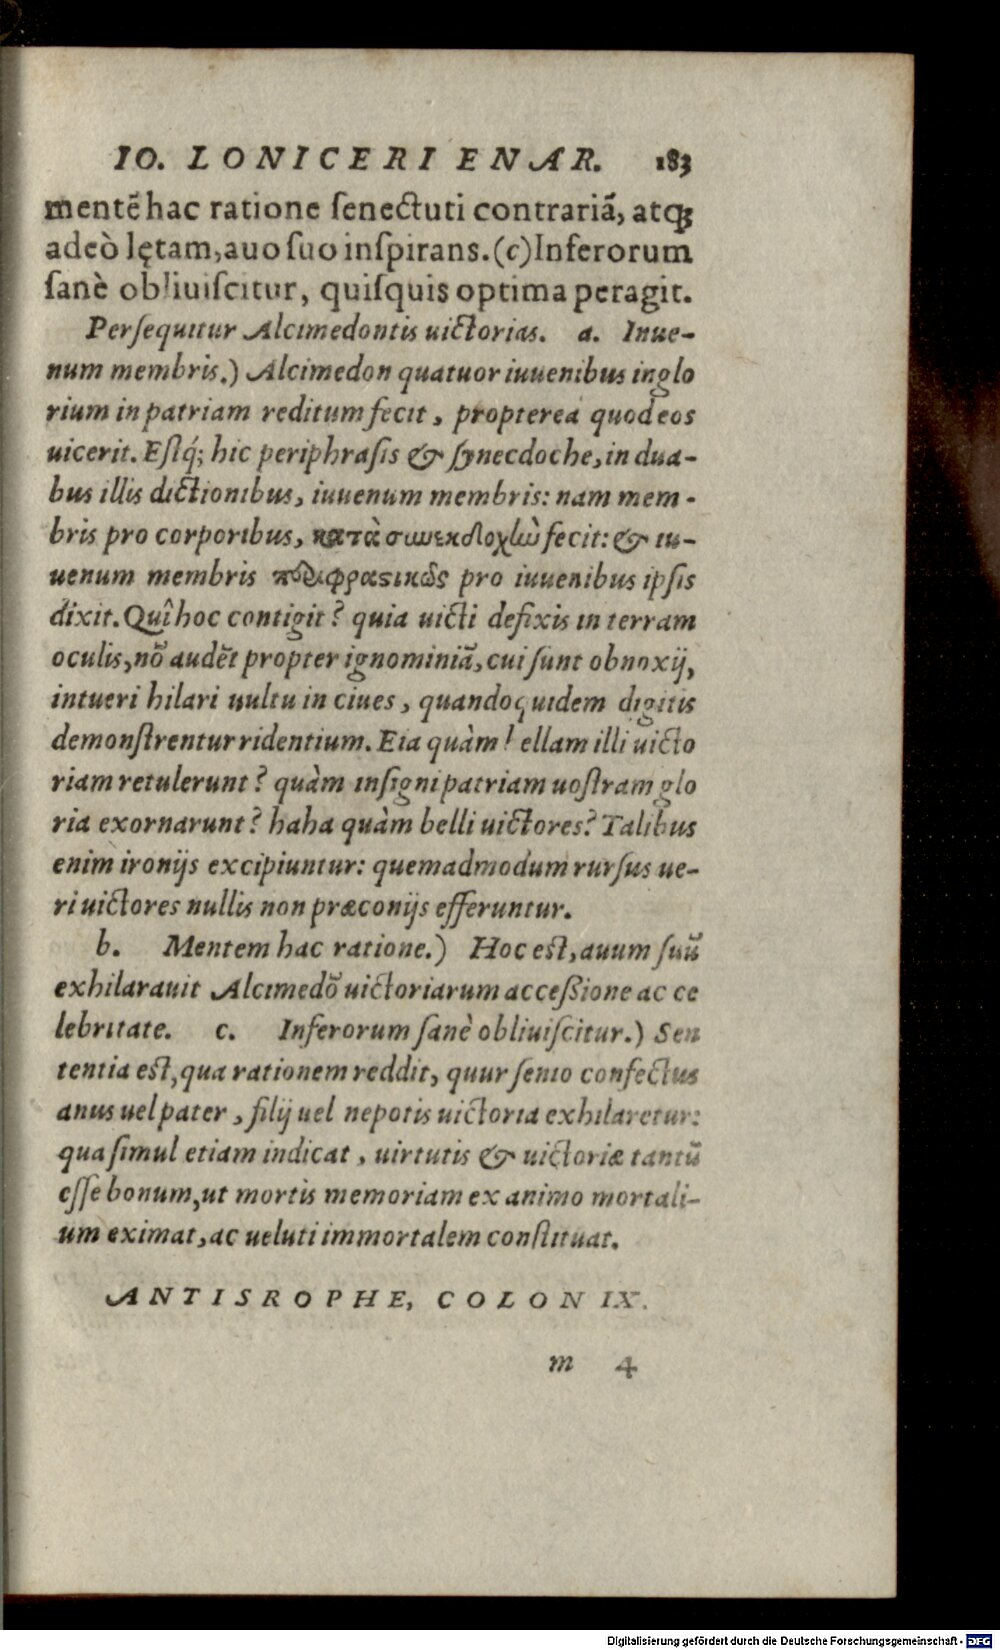 IO. LONICERI ENAR. 183
mentẽ hac ratione ſenectuti contrariã, atqꝫ
adeò lętam, auo ſuo inſpirans. (c) Inferorum
ſanè obliuiſcitur, quiſquis optima peragit.
Perſequitur Alcimedontis uictorias. a. Iuue-
num membris.) Alcimedon quatuor iuuenibus inglo
rium in patriam reditum fecit, propterea quod eos
uicerit. Eſtq́; hic periphraſis & ſynecdoche, in dua-
bus illis dictionibus, iuuenum membris: nam mem-
bris pro corporibus, κατὰ συνεκδοχὴν fecit: & iu-
uenum membris περιφραστικῶς pro iuuenibus ipſis
dixit. Quî hoc contigit? quia uicti defixis in terram
oculis, nõ audẽt propter ignominiã, cui ſunt obnoxij,
intueri hilari uultu in ciues, quandoquidem digitis
demonſtrentur ridentium. Eia quàm bellam illi uicto
riam retulerunt? quàm inſigni patriam uoſtram glo
ria exornarunt? haha quàm belli uictores? Talibus
enim ironijs excipiuntur: quemadmodum rurſus ue-
ri uictores nullis non præconijs efferuntur.
b. Mentem hac ratione.) Hoc eſt, auum ſuũ
exhilarauit Alcimedõ uictoriarum acceßione ac ce
lebritate. c. Inferorum ſanè obliuiſcitur.) Sen
tentia eſt, qua rationem reddit, quur ſenio confectus
anus uel pater, filij uel nepotis uictoria exhilaretur:
qua ſimul etiam indicat, uirtutis & uictoriæ tantũ
eſſe bonum, ut mortis memoriam ex animo mortali-
um eximat, ac ueluti immortalem conſtituat.
ANTISROPHE, COLON IX.
m 4
Digitalisierung gefördert durch die Deutsche Forschungsgemeinschaft - DFG